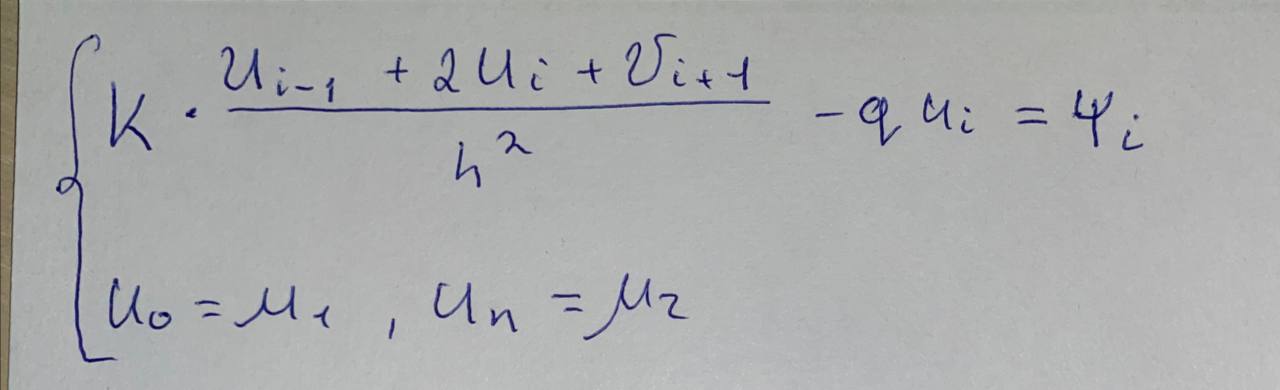 K · (u_{i-1} + 2u_i + v_{i+1}) / h² - q u_i = φ_i
u₀ = μ₁, u_n = μ₂